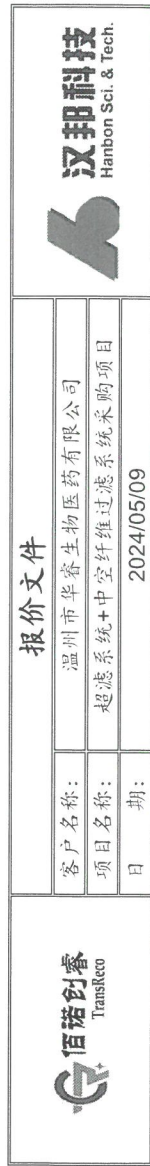 佰诺创睿
TransReco
报价文件
客户名称: 温州市华睿生物医药有限公司
项目名称: 超滤系统+中空纤维过滤系统采购项目
日 期: 2024/05/09
汉邦科技
Hanbon Sci. & Tech.